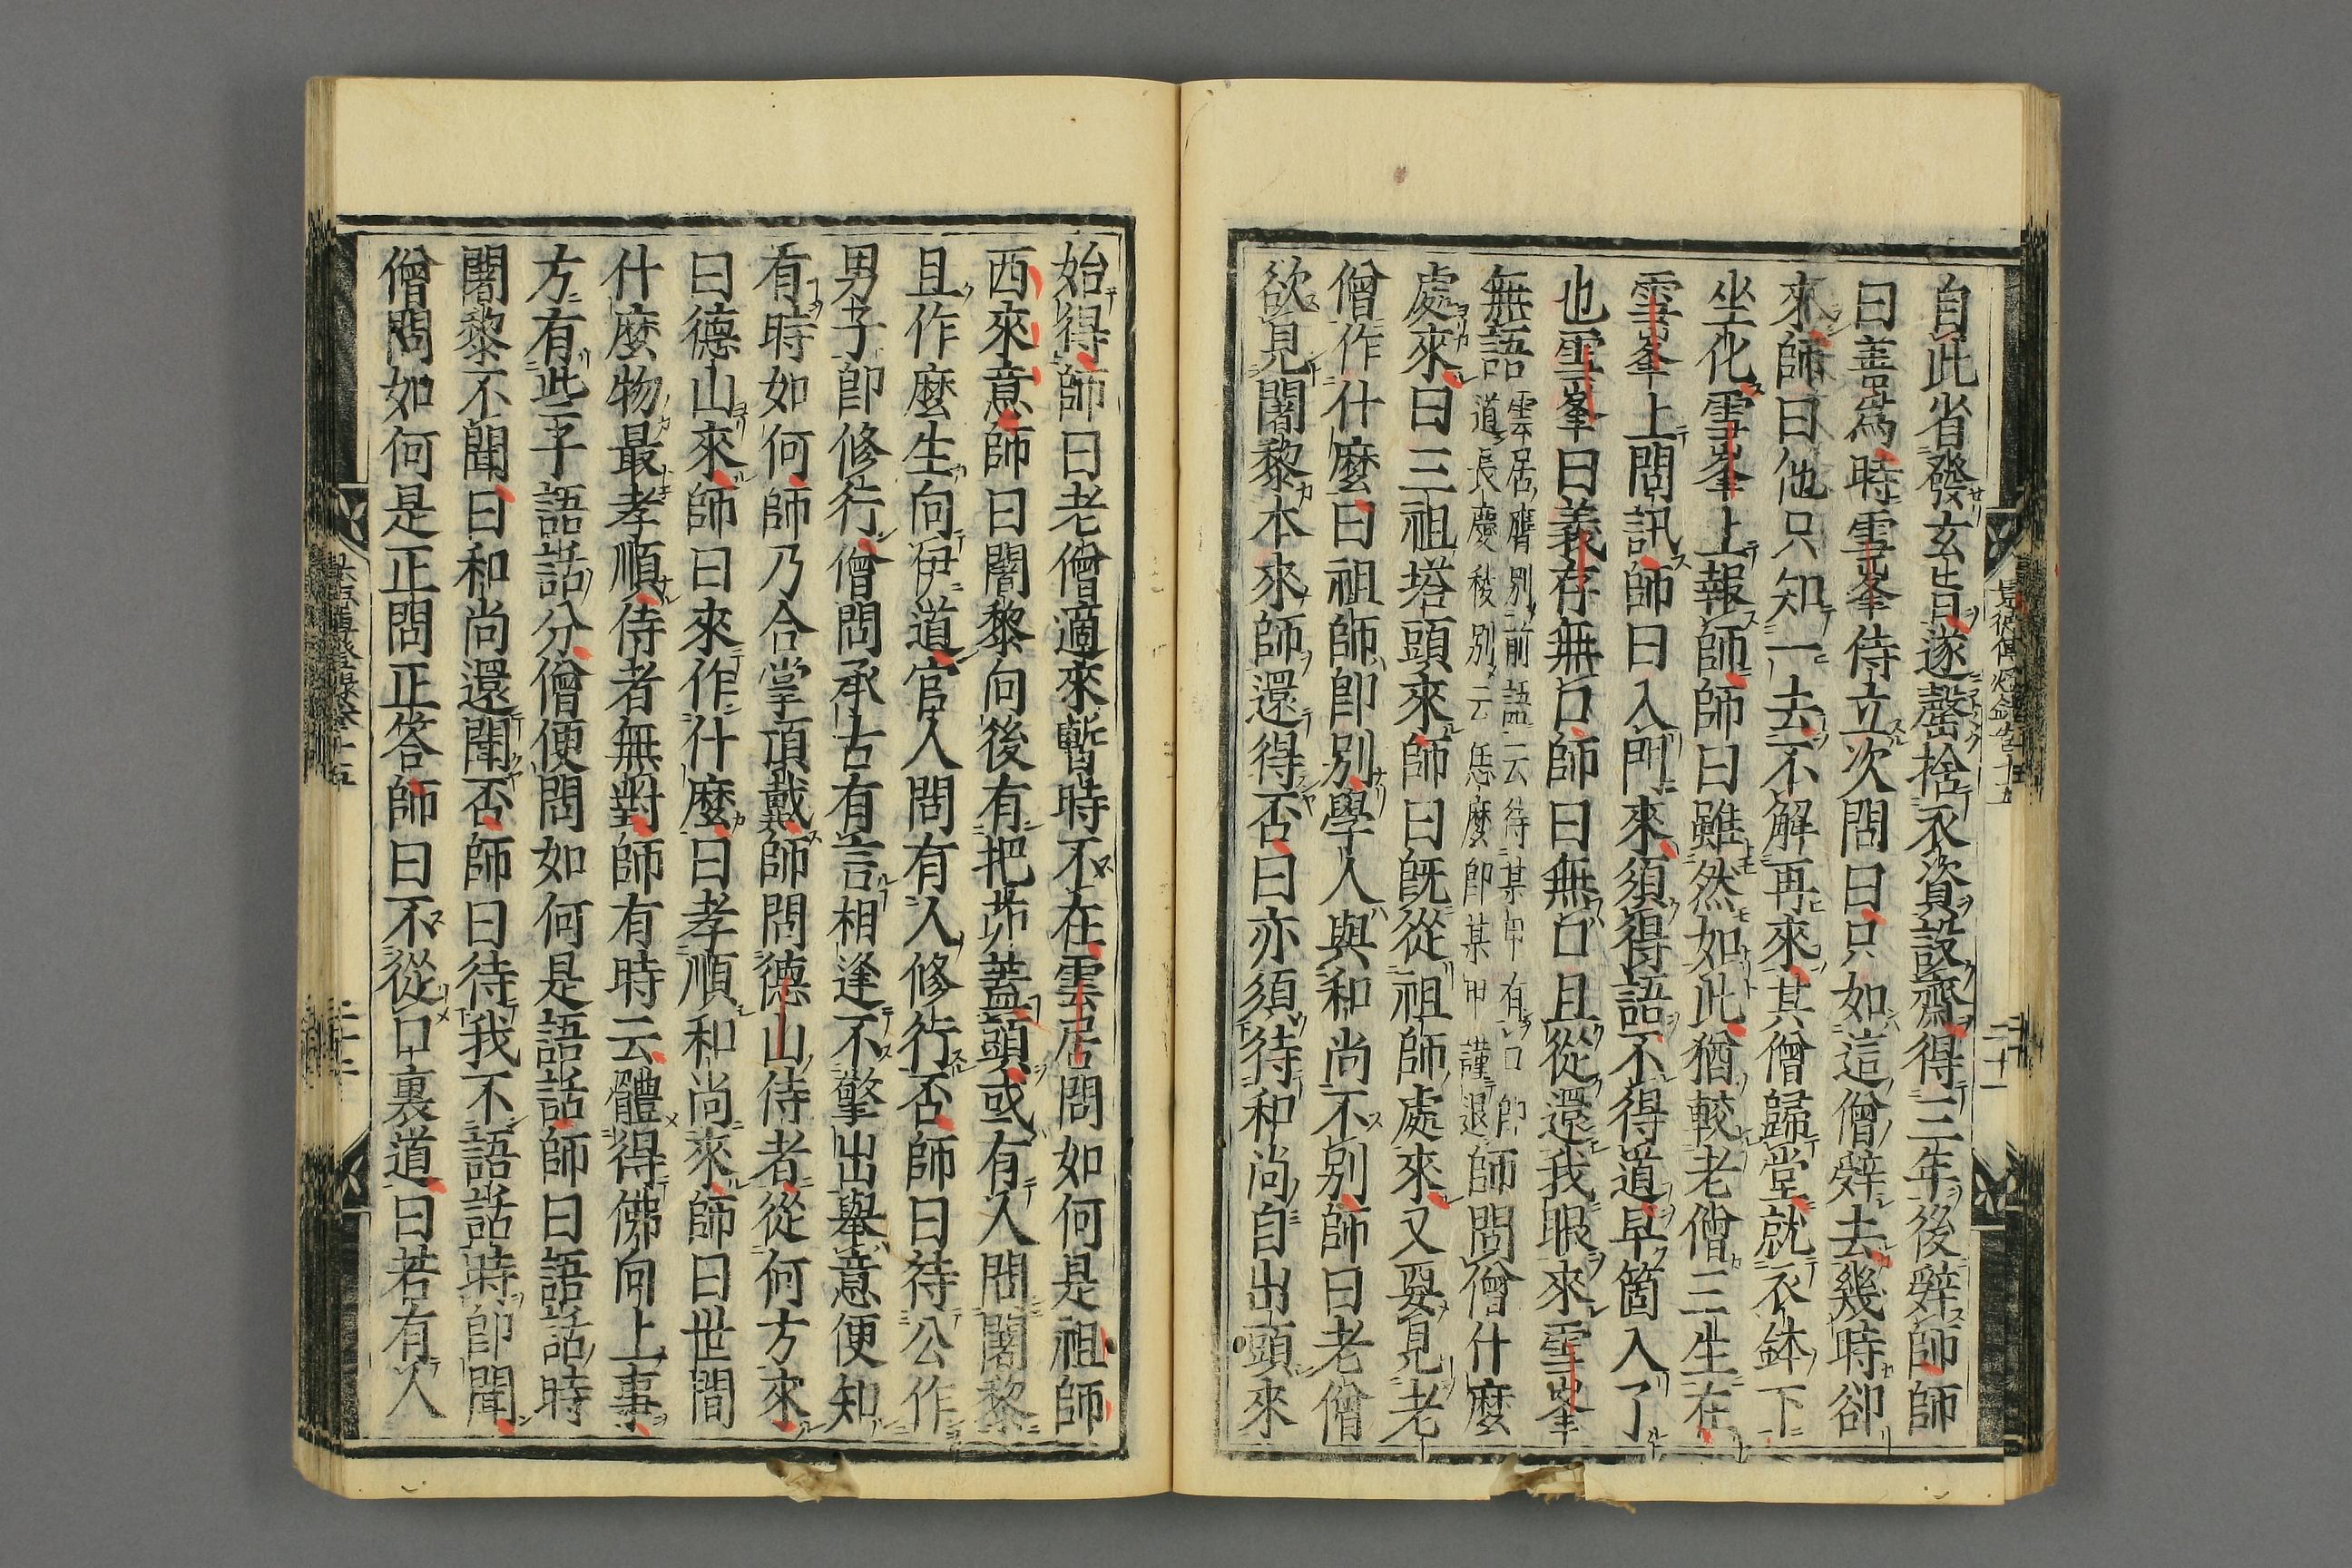 自此省發玄旨遂罄捨衣資設齋得三年後辭師師
曰善爲時雪峯侍立次問曰只如這僧辭去幾時卻
來師曰他只知一去不解再來其僧歸堂就衣鉢下
坐化雪峯上報師師曰雖然如此猶較老僧三生在
雪峯上問訊師曰入門來須得語不得道早箇入了
也雪峯曰義存無口師曰無口且從還我眼來雪峯
無語雲居膺別前語云待某甲有口即道長慶稜別云恁麼即某甲謹退師問僧什麼
處來曰三祖塔頭來師曰既從祖師處來又要見老
僧作什麼曰祖師即別學人與和尚不別師曰老僧
欲見闍黎本來師還得否曰亦須待和尚自出頭來
景德傳燈録卷十五
二十一
始得師曰老僧適來暫時不在雲居問如何是祖師
西來意師曰闍黎向後有把茆蓋頭或有人問闍黎
且作麼生向伊道官人問有人修行否師曰待公作
男子即修行僧問承古有言相逢不擎出舉意便知
有時如何師乃合掌頂戴師問德山侍者從何方來
曰德山來師曰來作什麼曰孝順和尚來師曰世間
什麼物最孝順侍者無對師有時云體得佛向上事
方有些子語話分僧便問如何是語話師曰語話時
闍黎不聞曰和尚還聞否師曰待我不語話時即聞
僧問如何是正問正答師曰不從口裏道曰若有人